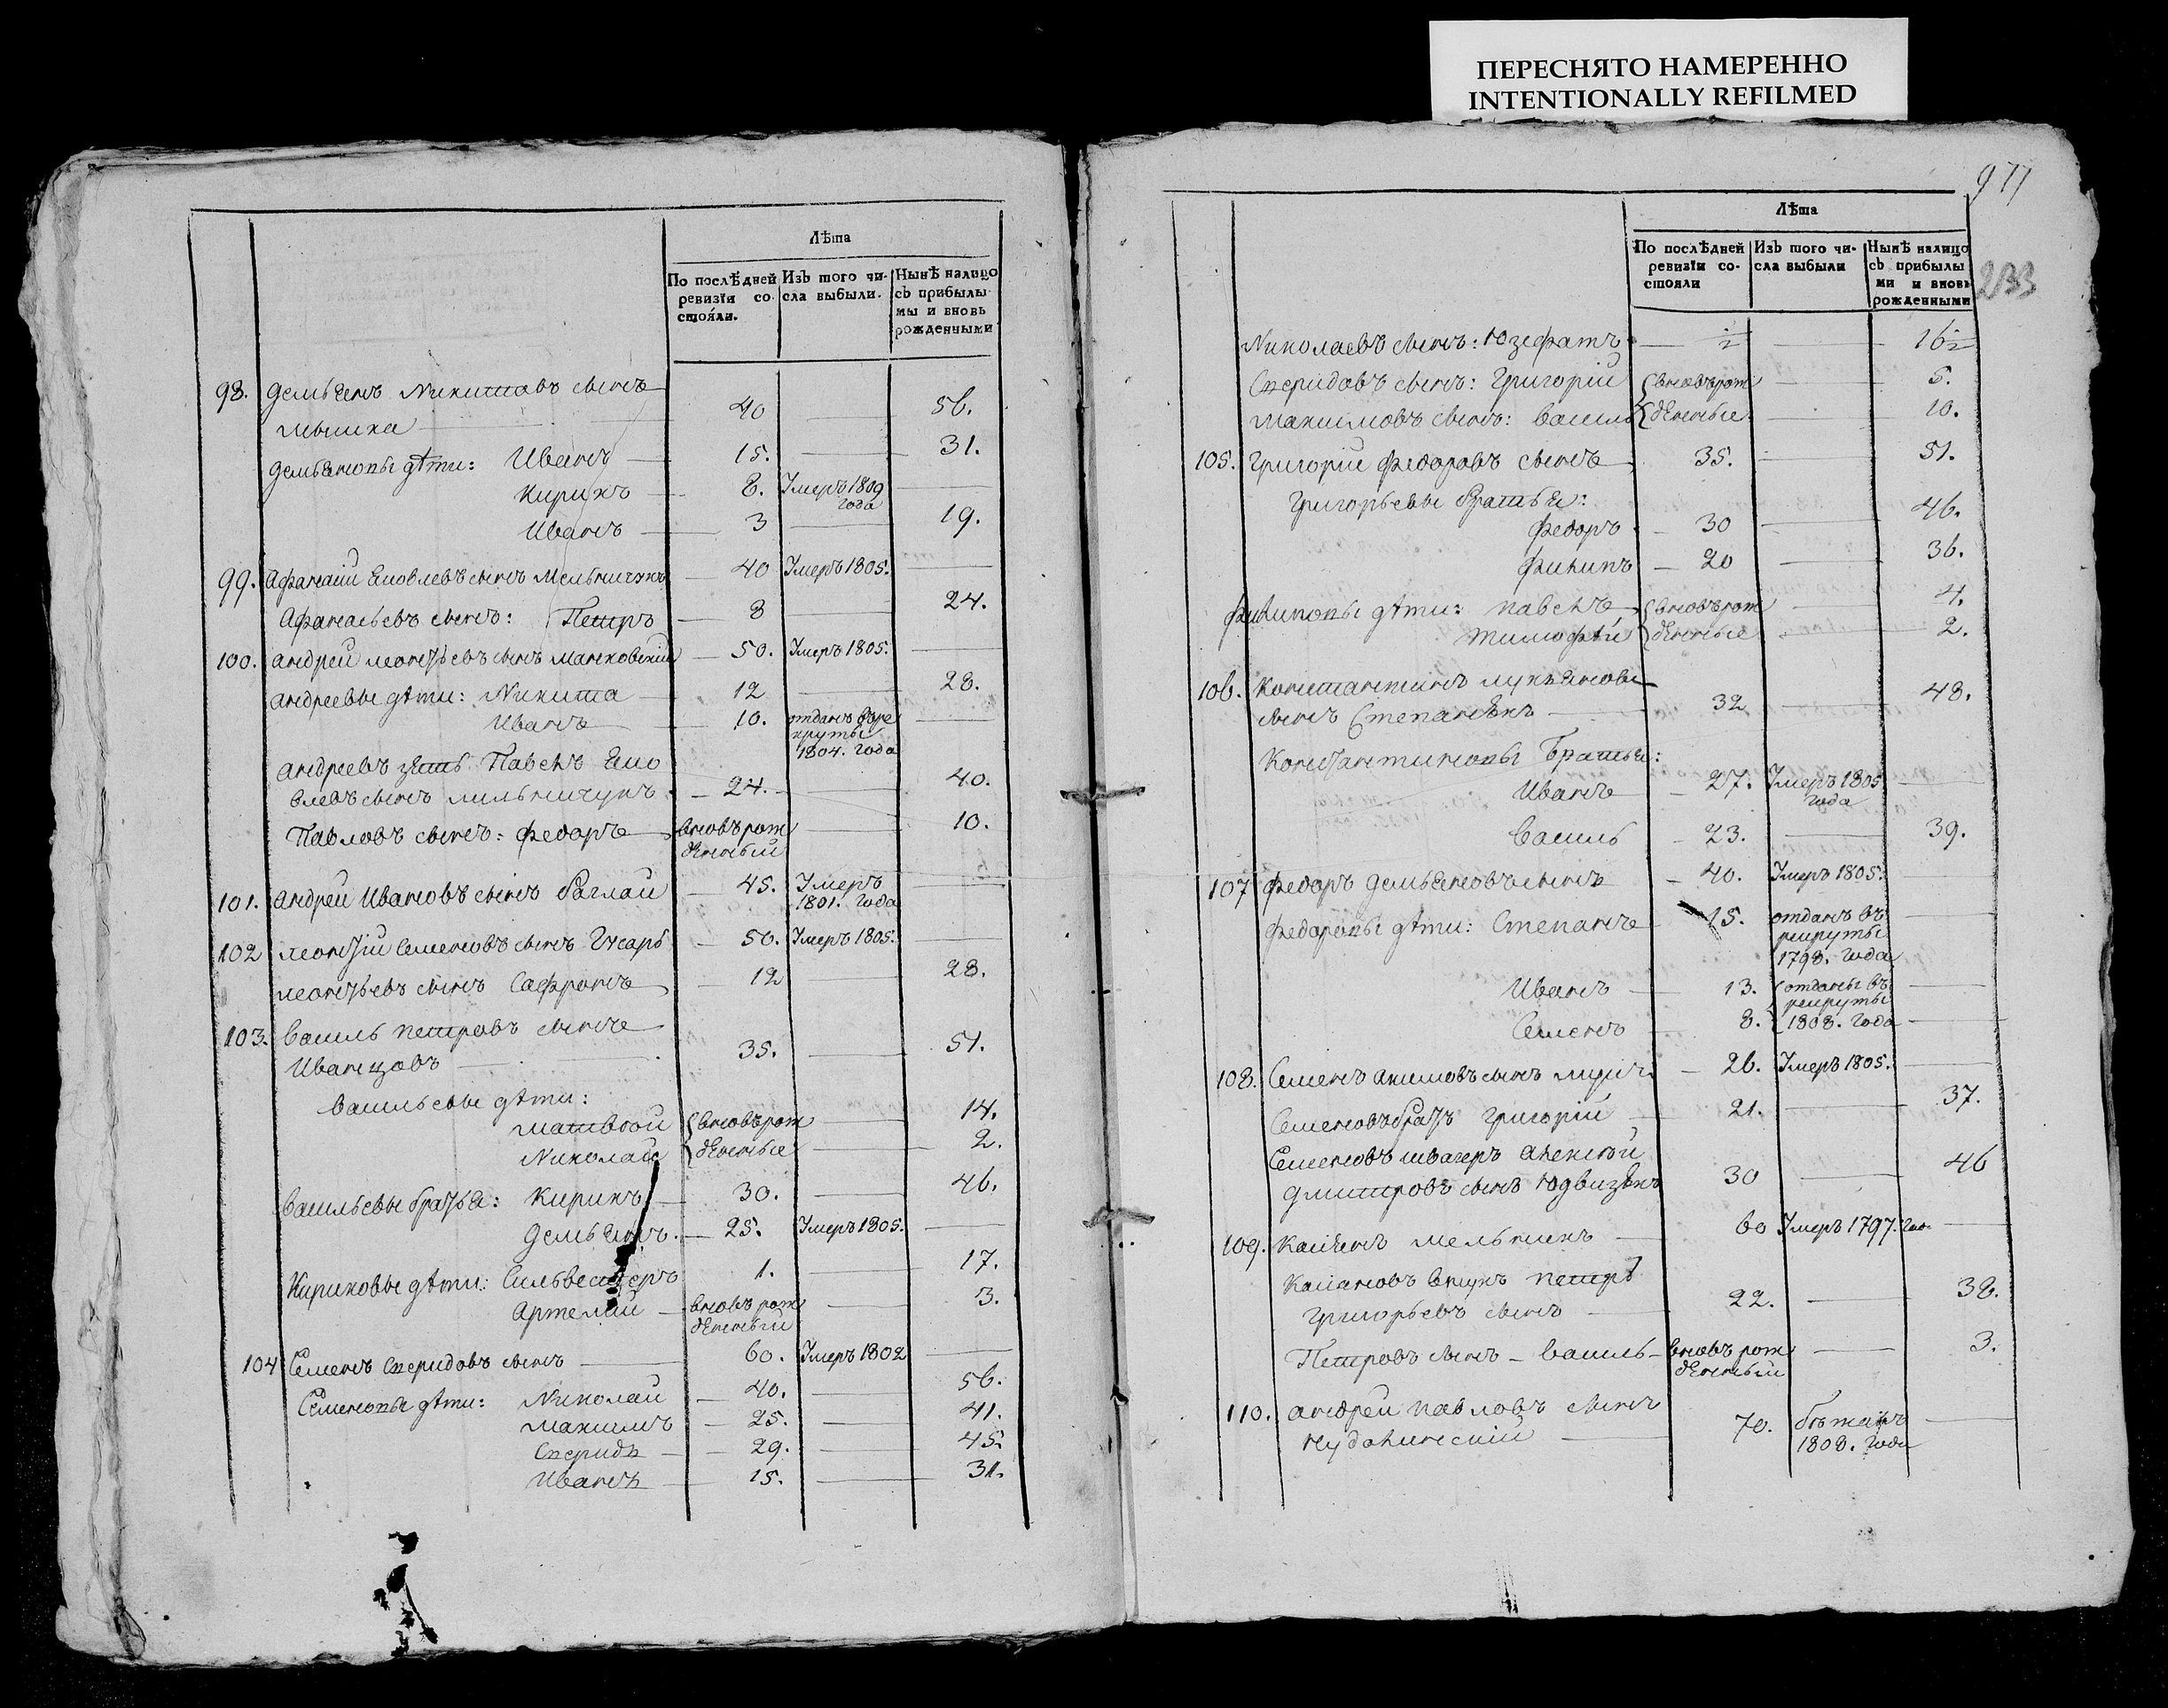 ПЕРЕСНЯТО НАМЕРЕННО
INTENTIONALLY REFILMED
Лѣта
По послѣдней ревизіи состояли.
Изъ того числа выбыли.
Нынѣ налицо съ прибылыми и вновь рожденными
98. Демьянъ Никитовъ сынъ
мышка 40 56.
Демьяновы дѣти: Иванъ 15. 31.
Кирикъ 8. Умеръ 1809 года
Иванъ 3 19.
99. Афанасій Яковлевъ сынъ Мельничукъ 40 Умеръ 1805.
Афанасьевъ сынъ: Петръ 8 24.
100. Андрей Леонтьевъ сынъ Манковскій 50. Умеръ 1805.
Андреевы дѣти: Никита 12 28.
Иванъ 10. отданъ въ рекруты 1804. года
Андреевъ зять Павелъ Яко
влевъ сынъ мильничукъ 24. 40.
Павловъ сынъ: Федоръ вновърожденный 10.
101. Андрей Ивановъ сынъ Баглай 45. Умеръ 1801. года
102 Леонтій Семеновъ сынъ Гусаръ 50. Умеръ 1805.
Леонтьевъ сынъ Сафронъ 12 28.
103. Василь Петровъ сынъ
Иванцовъ 35. 51.
Васильевы дѣти:
Матвѣй вновърож 14.
Николай денные 2.
Васильевы братья: Кирикъ 30. 46.
Демьянъ 25. Умеръ 1805.
Кириковы дѣти: Сильвестеръ 1. 17.
Артемій вновърожденный 3.
104 Семенъ Спиридовъ сынъ 60. Умеръ 1802
Семеновы дѣти: Николай 40. 56.
Максимъ 25. 41.
Спиридъ 29. 45.
Иванъ 15. 31.
977
233
Лѣта
По послѣдней ревизіи состояли
Изъ того числа выбыли
Нынѣ налицо съ прибылыми и вновь рожденными
Николаевъ сынъ: Юзефатъ ½ 16½
Спиридовъ сынъ: Григорій вновърож 5.
Максимовъ сынъ: Василь денные 10.
105. Григорій Федоровъ сынъ 35. 51.
Григорьевы братья:
Федоръ 30 46.
Филипъ 20 36.
Филиповы дѣти: Павелъ вновърож 4.
Тимофѣй денные 2.
106. Константинъ Лукьяновъ
сынъ Степанѣкъ 32 48.
Константиновы братья:
Иванъ 27. Умеръ 1805 года
Василь 23. 39.
107 Федоръ Демьяновъ сынъ 40. Умеръ 1805.
Федоровы дѣти: Степанъ 15. отданъ въ рекруты 1798. года
Иванъ 13. отданы въ рекруты
Семенъ 8. 1808. года
108. Семенъ Акимовъ сынъ 26. Умеръ 1805.
Семеновъ братъ Григорій 21. 37.
Семеновъ швагеръ Алексѣй
Дмитровъ сынъ Юдвизѣкъ 30 46
109. Касіянъ Мельникъ 60 Умеръ 1797. года
Касіановъ внукъ Петръ
Григорьевъ сынъ 22. 38.
Петровъ сынъ Василь вновърожденный 3.
110. Андрей Павловъ сынъ
Чудалинскій 70. бѣжалъ 1808. года